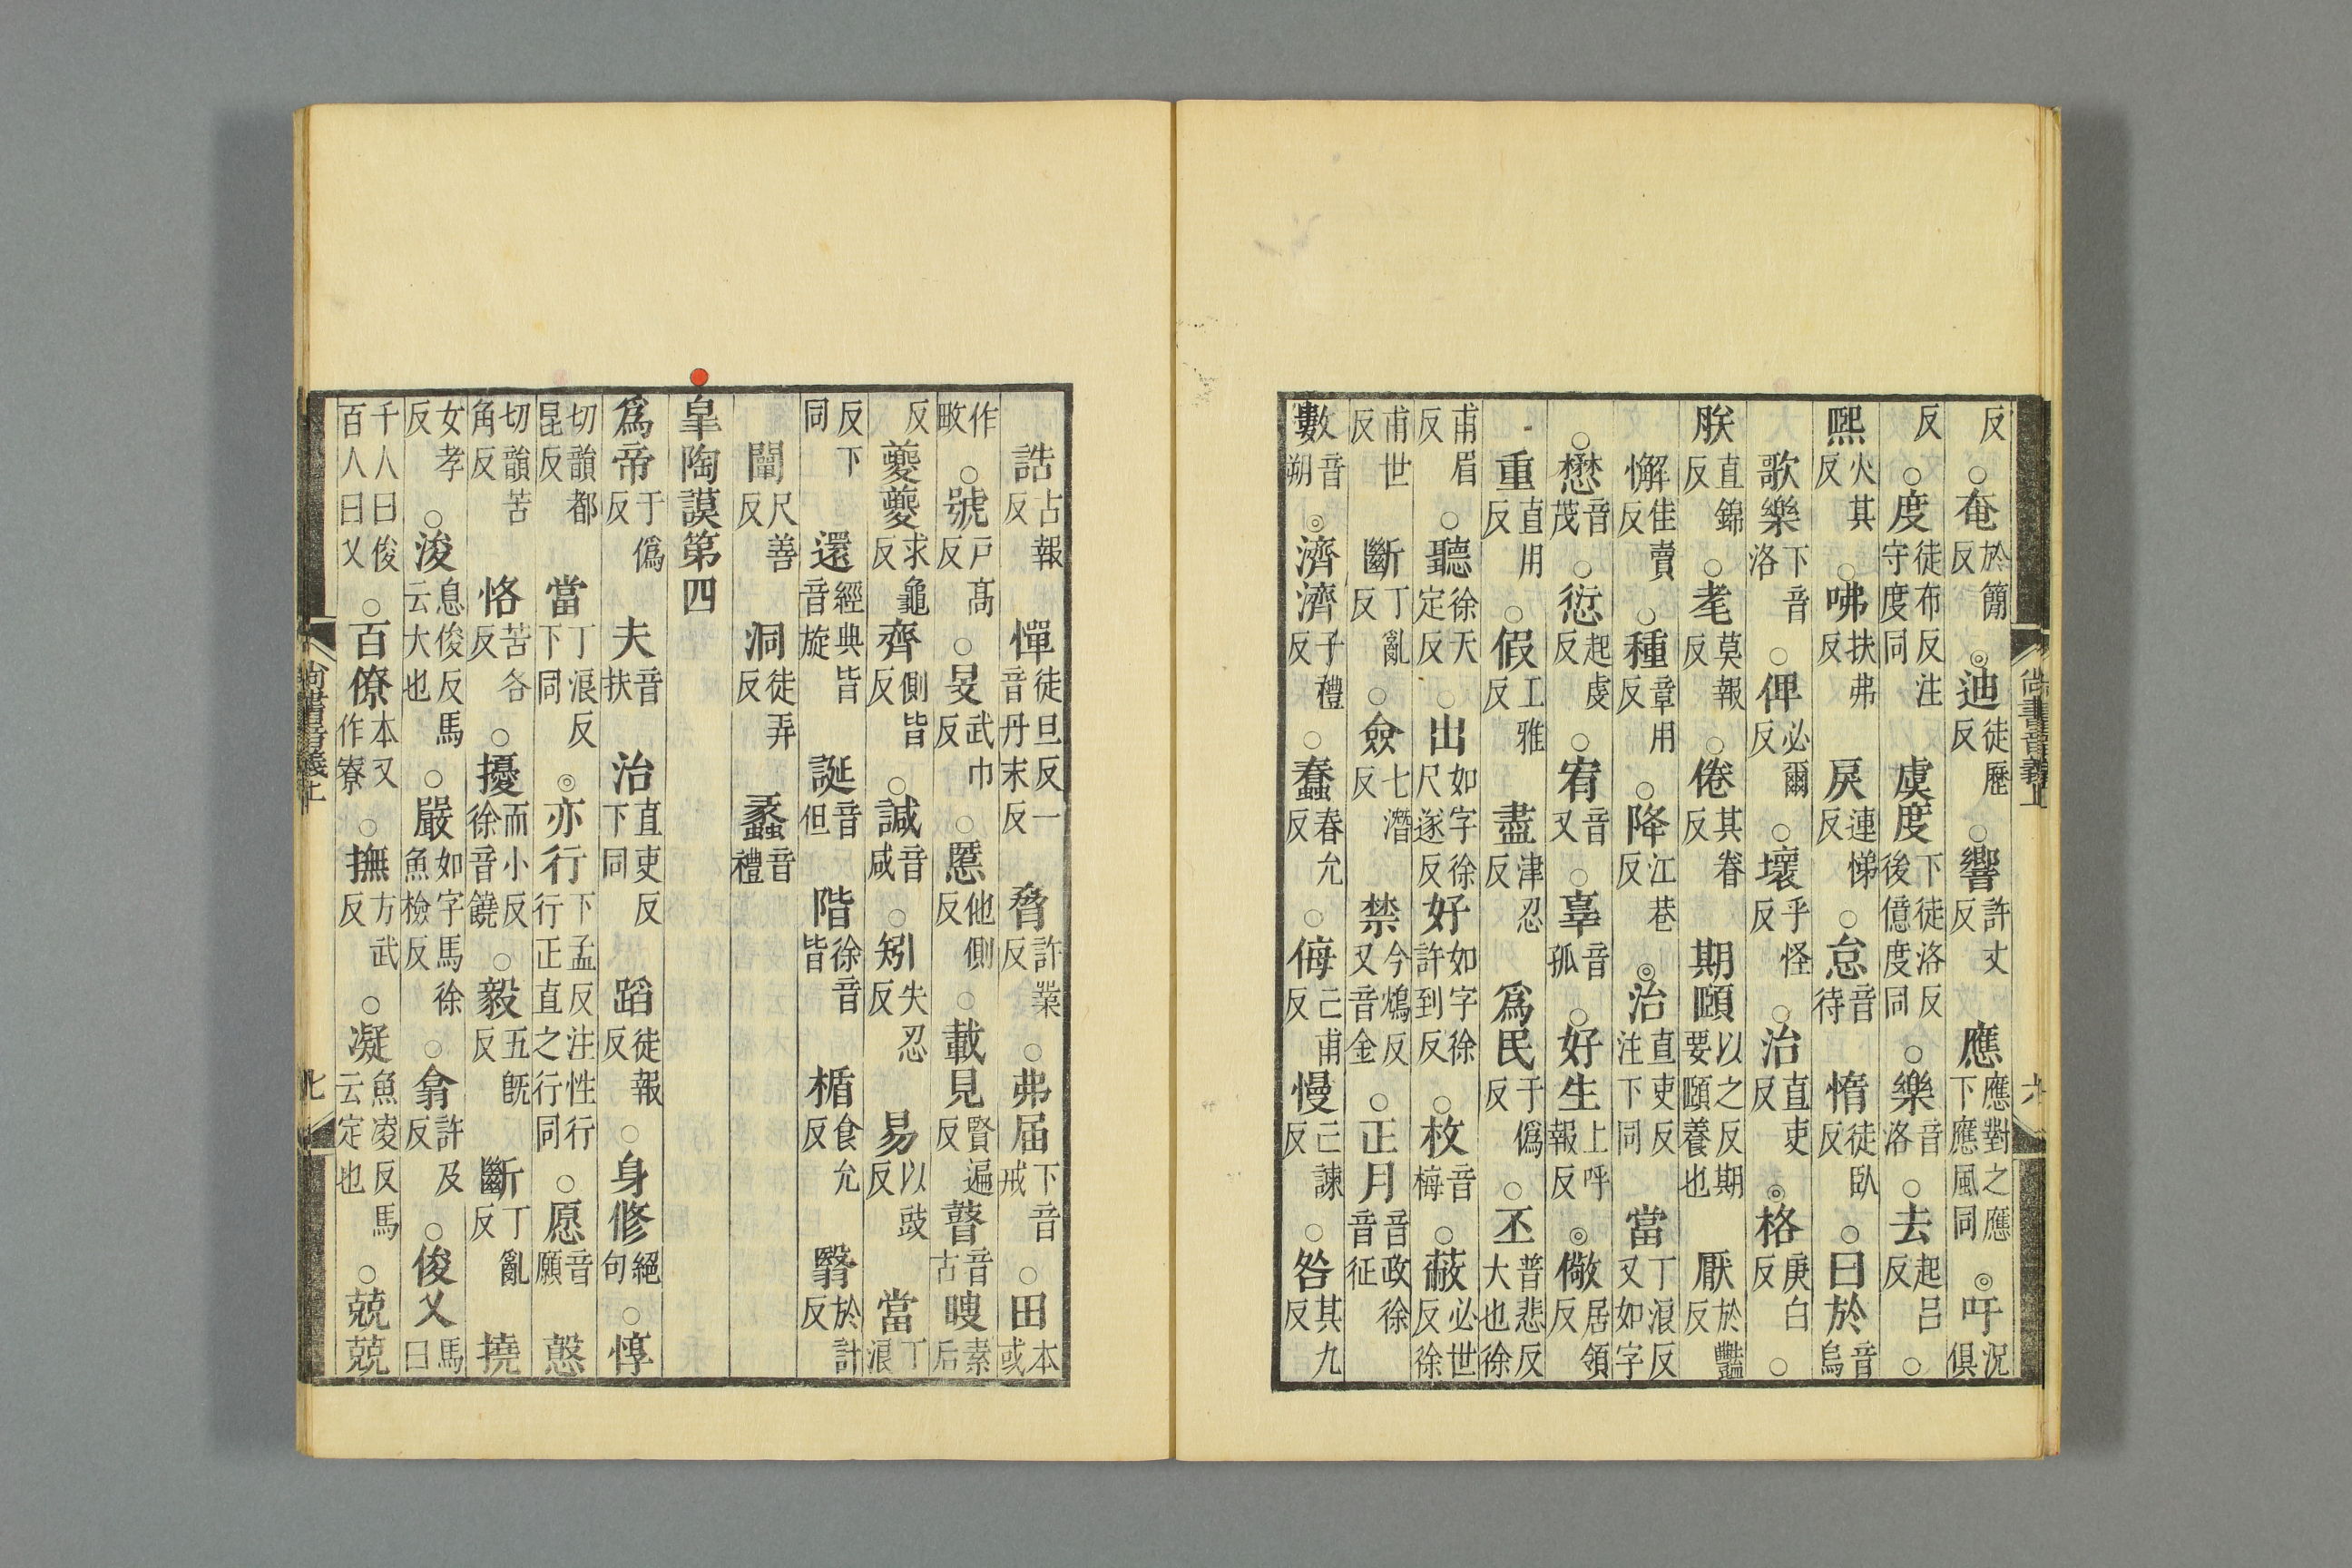 反○奄於簡反◎迪徒歷反○響許丈反應應對之應下應風同◎吁況俱
反○度徒布反注守度同虞度下徒洛反後億度同○樂音洛○去起吕反○
熈火其反○咈扶弗反戾連悌反○怠音待惰徒臥反○曰於音烏
歌樂下音洛○俾必爾反○壞乎怪反○治直吏反◎格庚白反○
朕直錦反○耄莫報反○倦其眷反期頤以之反期要頤養也厭於豔反
懈佳賣反○種章用反○降江巷反◎治直吏反注下同當丁浪反又如字
○懋音茂○愆起虔反○宥音又○辜音孤○好生上呼報反◎儆居領反
重直用反○假工雅反盡津忍反爲民于僞反○丕普悲反大也徐
甫眉反○聽徐天定反○出如字徐尺遂反好如字徐許到反○枚音梅○蔽必世反徐
甫世反斷丁亂反○僉七潛反禁今鴆反又音金○正月音政徐音征
數音朔◎濟濟子禮反○蠢春允反○侮亡甫反慢亡諫反○咎其九反
尚書音義上
九
誥占報反憚徒旦反一音丹末反脅許業反○弗届下音戒○田本或
作畋○號戶髙反○旻武巾反○慝他側反○載見賢遍反瞽音古瞍素后
反夔夔求龜反齊側皆反○諴音咸○矧失忍反易以豉反當丁浪
反下同還經典皆音旋誕音但階徐音皆楯食允反翳於計反
闡尺善反洞徒弄反蠡音禮
皐陶謨第四
爲帝于僞反夫音扶治直吏反下同蹈徒報反○身修絕句○惇
切韻都昆反當丁浪反下同◎亦行下孟反注性行行正直之行同○愿音願愨
切韻苦角反恪苦各反○擾而小反徐音饒○毅五旣反斷丁亂反撓
女孝反○浚息俊反馬云大也○嚴如字馬徐魚檢反○翕許及反○俊乂馬曰
千人曰俊百人曰乂○百僚本又作寮○撫方武反○凝魚凌反馬云定也○兢兢
尚書音義上